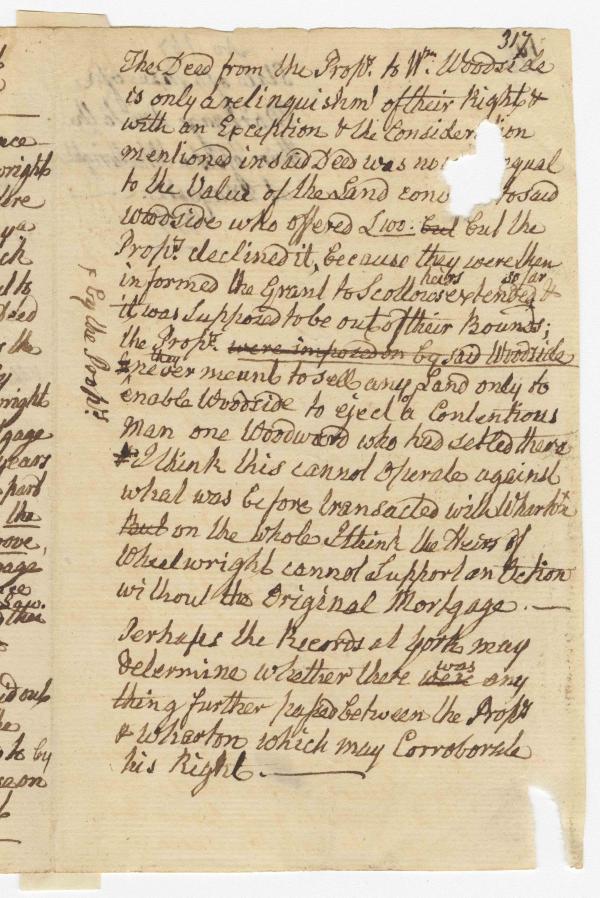 317
The Deed from the Prop.rs to Wm. Woodside
is only a relinguishmt of their Right &
with an Exception & the Consideration
mentioned in said Deed was no equal
to the Value of the Land to said
Woodside who offered £100. but but the
Prop.rs declined it, because they were then
informed the Grant to Scollows heirs extended so far &
it was Supposed to be out of their Bounds;
the Prop.rs were imposed on by said Woodside
they never meant to sell any of Land only to
enable Woodside to eject a Contentious
Man one Woodward who had settled there
& I think this cannot Operate against
what was before transacted with Wharton
But on the whole I think the Heirs of
Wheelwright cannot Support an Action
without the Original Mortgage. —
Perhaps the Records at York may
determine whether there were was any
thing further passed between the Prop.rs
& Wharton which may Corroborate
his Right. —
by the Prop.rs